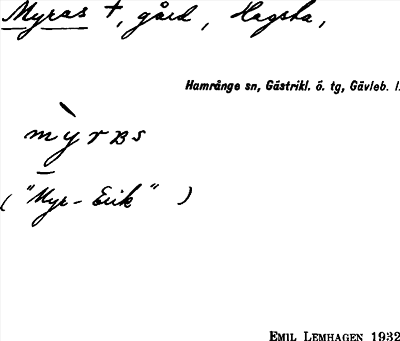 Myras †, gård, Hagsta,
Hamrånge sn, Gästrikl. ö. tg, Gävleb. l.
mỳrʙs
("Myr-Erik")
EMIL LEMHAGEN 1932